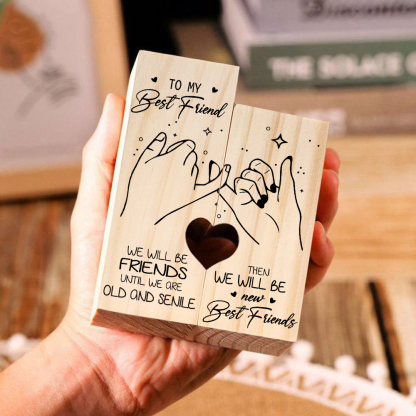 TO MY
Best Friend
WE WILL BE
FRIENDS
UNTIL WE ARE
OLD AND SENILE
THEN
WE WILL BE
new
Best Friends
THE SOLACE O